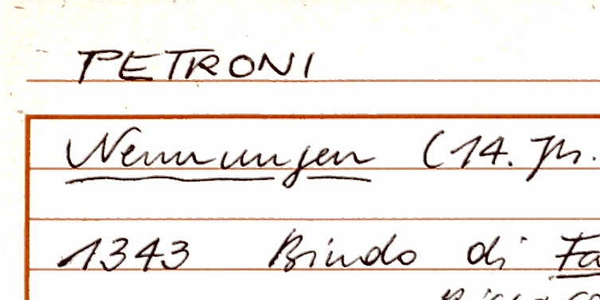 PETRONI
Nennungen (14. Jh.
1343 Bindo di Fa